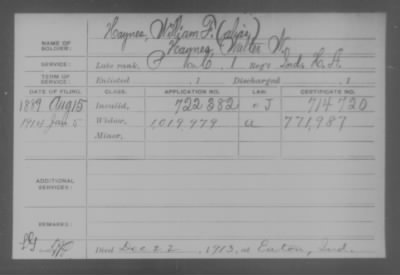 Haynes, William F. (alias)
NAME OF SOLDIER: Haynes, Walter W.
SERVICE: Late rank, P Co. C, 1 Reg't Ind. H. A.
TERM OF SERVICE: Enlisted , 1 Discharged , 1
DATE OF FILING. CLASS. APPLICATION NO. LAW. CERTIFICATE NO.
1889 Aug 15 Invalid, 722382 J 714720
1914 Jan 5 Widow, 1,019,979 u 771,987
Minor,
ADDITIONAL SERVICES:
REMARKS:
Died Dec 22, 1913, at Eaton, Ind.